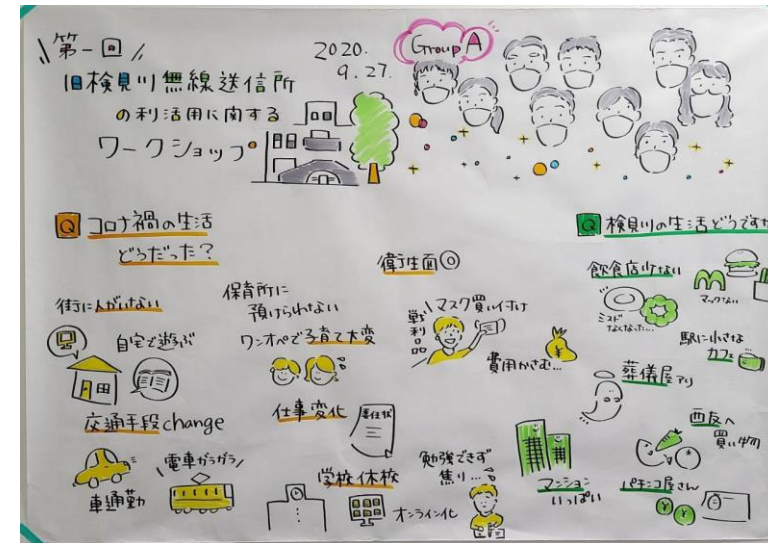 第一回
旧検見川無線送信所
の利活用に関する
ワークショップ
2020.
9.27.
Group A
Q コロナ禍の生活
どうだった?
街に人がいない
自宅で遊ぶ
交通手段change
車通勤
電車ガラガラ
保育所に
預けられない
ワンオペで子育て大変
仕事変化
学校休校
オンライン化
衛生面◎
マスク買い付け
戦利品
費用かさむ…
¥
勉強できず
焦り…
Q 検見川の生活どうですか
飲食店少ない
マックない
ミスド
なくなった…
駅に小さな
カフェ
葬儀屋アリ
西友へ
買い物
マンション
いっぱい
パチンコ屋さん
¥ ¥